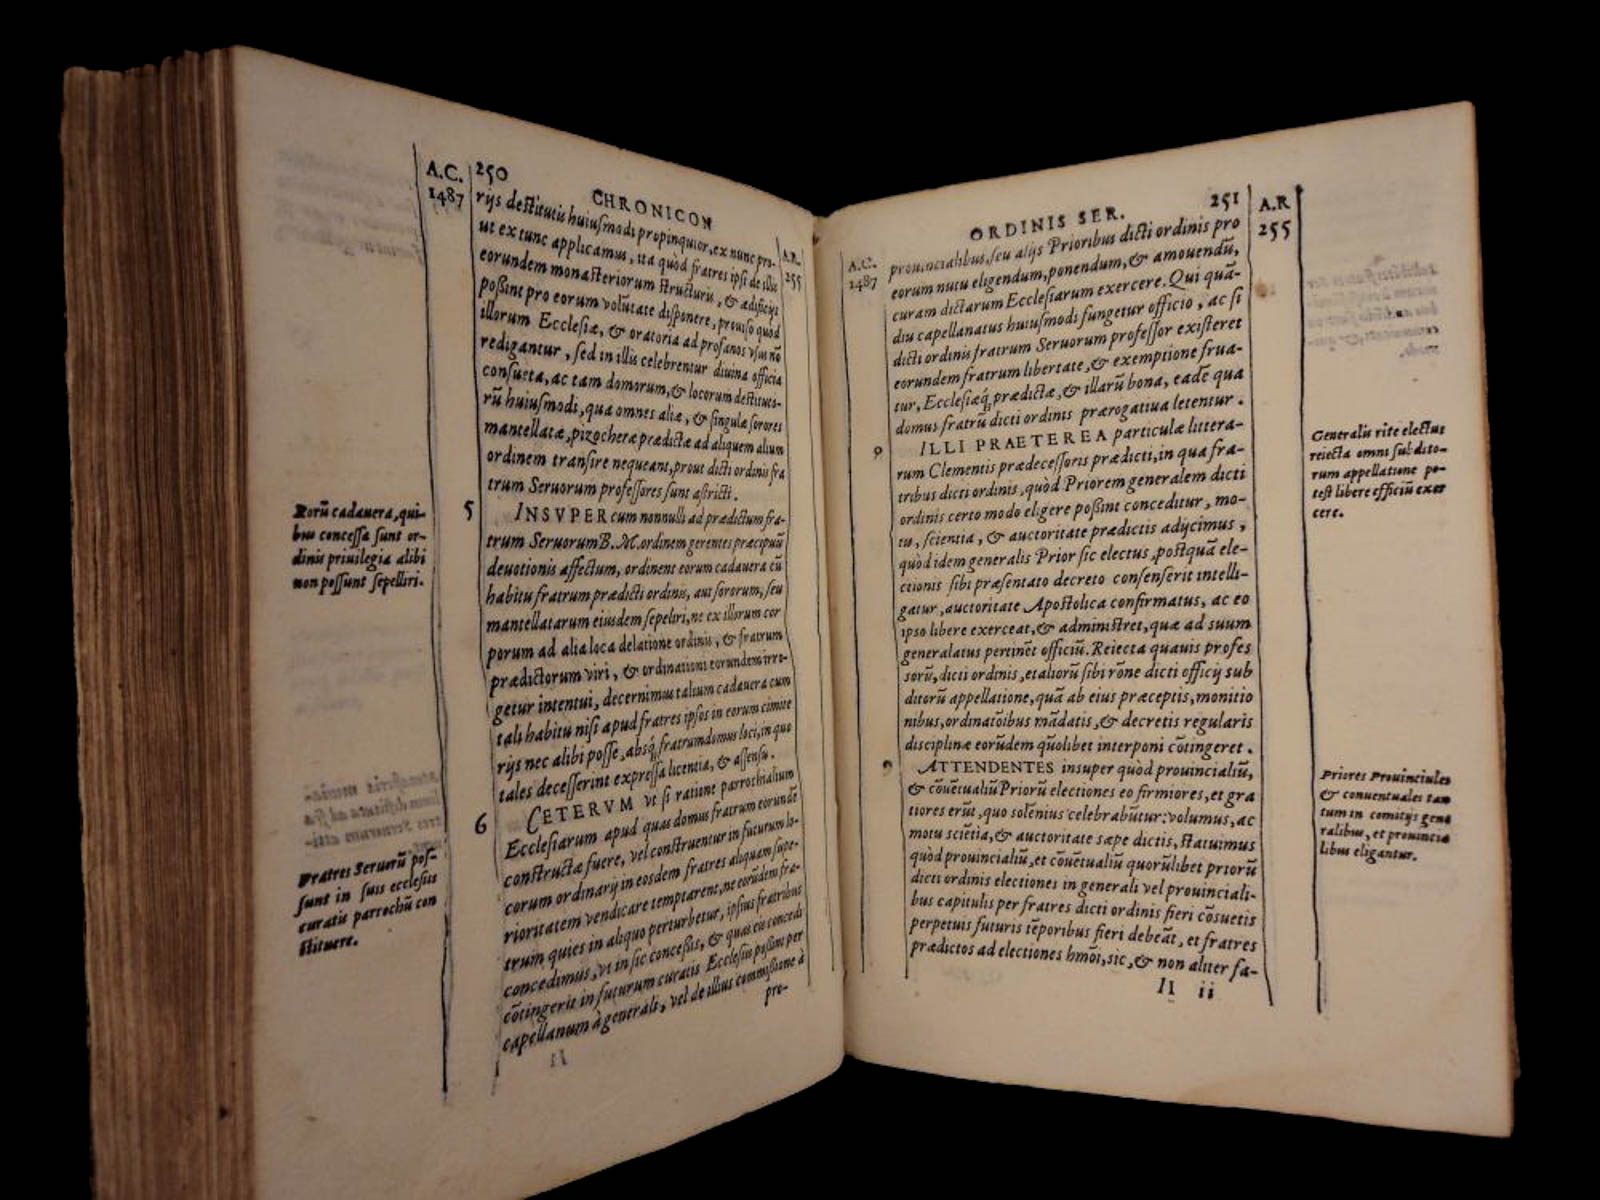 A.C.
1487
250
CHRONICON
A.R.
255
rijs destitutis huiusmodi propinquior, ex nunc pro-
ut ex tunc applicamus, ita quòd fratres ipsi de illis
eorundem monasteriorum structuris, & ædificijs
possint pro eorum volūtate disponere, prouiso quòd
illorum Ecclesiæ, & oratoria ad profanos vsus nō
redigantur, sed in illis celebrentur diuina officia
consueta, ac tam domorum, & locorum destituto-
rū huiusmodi, qua omnes aliæ, & singulæ sorores
mantellatæ, pizocheræ prædictæ ad aliquem alium
ordinem transire nequeant, prout dicti ordinis fra
trum Seruorum professores sunt astricti.
5
INSVPER cum nonnulli ad prædictum fra-
trum Seruorum B. M. ordinem gerentes præcipuū
deuotionis affectum, ordinent eorum cadauera cū
habitu fratrum prædicti ordinis, aut sororum, seu
mantellatarum eiusdem sepeliri, ne ex illorum cor
porum ad alia loca delatione ordinis, & fratrum
prædictorum viri, & ordinationi eorundem irro-
getur intentui, decernimus talium cadauera cum
tali habitu nisi apud fratres ipsos in eorum cimite
rijs nec alibi posse, absq; fratrum domus loci, in quo
tales decesserint expressa licentia, & assensu.
6
CETERVM vt si ratione parrochialium
Ecclesiarum apud quas domus fratrum eorundē
constructæ fuere, vel construentur in futurum lo-
corum ordinarij in eosdem fratres aliquam supe-
rioritatem vendicare temptarent, ne eorūdem fra-
trum quies in aliquo perturbetur, ipsius fratribus
concedimus, vt in sic concessis, & quas eis concedi
cōtingerit in futurum curatis Ecclesijs possint per
capellanum à generali, vel de illius commissione à
pro-
Eorū cadauera, qui-
bus concessa sunt or-
dinis priuilegia alibi
non possunt sepelliri.
Fratres Seruorū pos-
sunt in suis ecclesijs
curatis parrochū con
stituere.
A.C.
1487
ORDINIS SER.
251
A.R
255
prouincialibus, seu alijs Prioribus dicti ordinis pro
eorum nutu eligendum, ponendum, & amouendū,
curam dictarum Ecclesiarum exercere. Qui quā-
diu capellanatus huiusmodi fungetur officio, ac si
dicti ordinis fratrum Seruorum professor existeret
eorundem fratrum libertate, & exemptione frua-
tur, Ecclesiæq; prædictæ, & illarū bona, eadē qua
domus fratrū dicti ordinis prærogatiua letentur.
ILLI PRAETEREA particulæ littera-
rum Clementis prædecessoris prædicti, in qua fra-
tribus dicti ordinis, quòd Priorem generalem dicti
ordinis certo modo eligere possint conceditur, mo-
tu, scientia, & auctoritate prædictis adijcimus,
quòd idem generalis Prior sic electus, postquā ele-
ctionis sibi præsentato decreto consenserit intelli-
gatur, auctoritate Apostolica confirmatus, ac eo
ipso libere exerceat, & administret, quæ ad suum
generalatus pertinēt officiū. Reiecta quauis profes
sorū, dicti ordinis, et aliorū sibi rōne dicti officij sub
ditorū appellatione, quā ab eius præceptis, monitio
nibus, ordinatōibus mādatis, & decretis regularis
disciplinæ eorūdem quōlibet interponi cōtingeret.
ATTENDENTES insuper quòd prouincialiū,
& cōuētualiū Priorū electiones eo firmiores, et gra
tiores erūt, quo solēnius celebrabūtur: volumus, ac
motu sciētia, & auctoritate sæpe dictis, statuimus
quòd prouincialiū, et cōuētualiū quorūlibet priorū
dicti ordinis electiones in generali vel prouinciali-
bus capitulis per fratres dicti ordinis fieri cōsuetis
perpetuis futuris tēporibus fieri debeāt, et fratres
prædictos ad electiones hmōi, sic, & non aliter fa-
II ii
Generalis rite electus
reiecta omni subdito-
rum appellatione po-
test libere efficiū exer
cere.
Priores Prouinciales
& conuentuales tan
tum in comitijs gene
ralibus, et prouincia
libus eligantur.